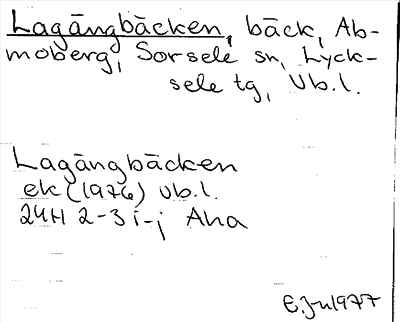 Lagängbäcken, bäck, Ab-
moberg, Sorsele sn, Lyck-
sele tg, Vb.l.
Lagängbäcken
ek (1976) Vb.l.
24H 2-3 i-j Aha
E.Jn 1977